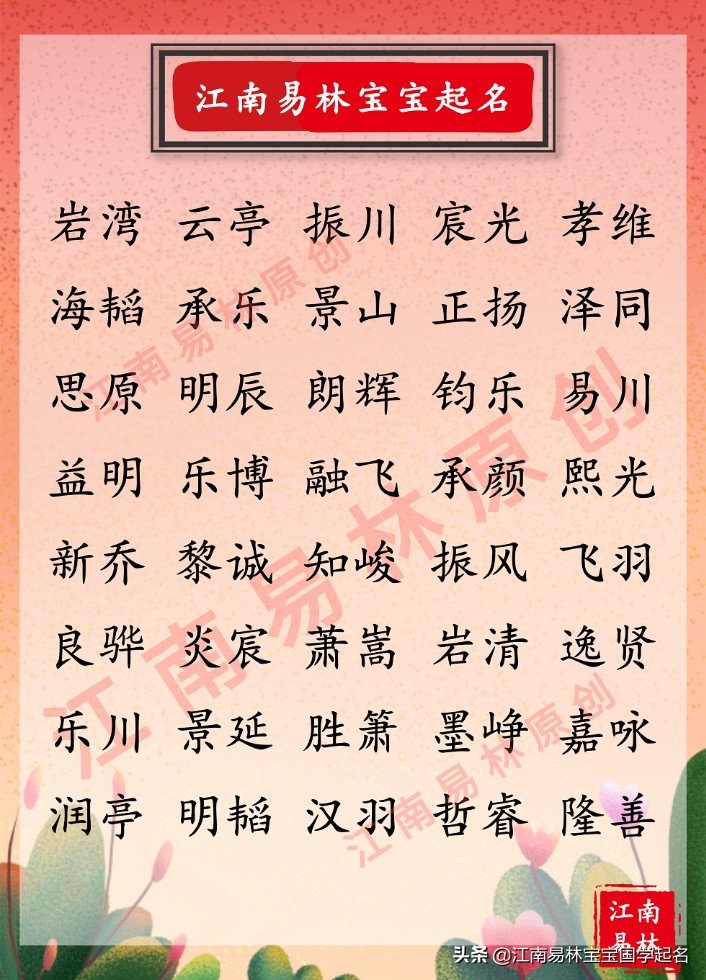 江南易林宝宝起名
岩湾 云亭 振川 宸光 孝维
海韬 承乐 景山 正扬 泽同
思原 明辰 朗辉 钧乐 易川
益明 乐博 融飞 承颜 熙光
新乔 黎诚 知峻 振风 飞羽
良骅 炎宸 萧嵩 岩清 逸贤
乐川 景延 胜箫 墨峥 嘉咏
润亭 明韬 汉羽 哲睿 隆善
江南易林原创
江南易林原创
江南易林原创
江南
易林
头条 @江南易林宝宝国学起名